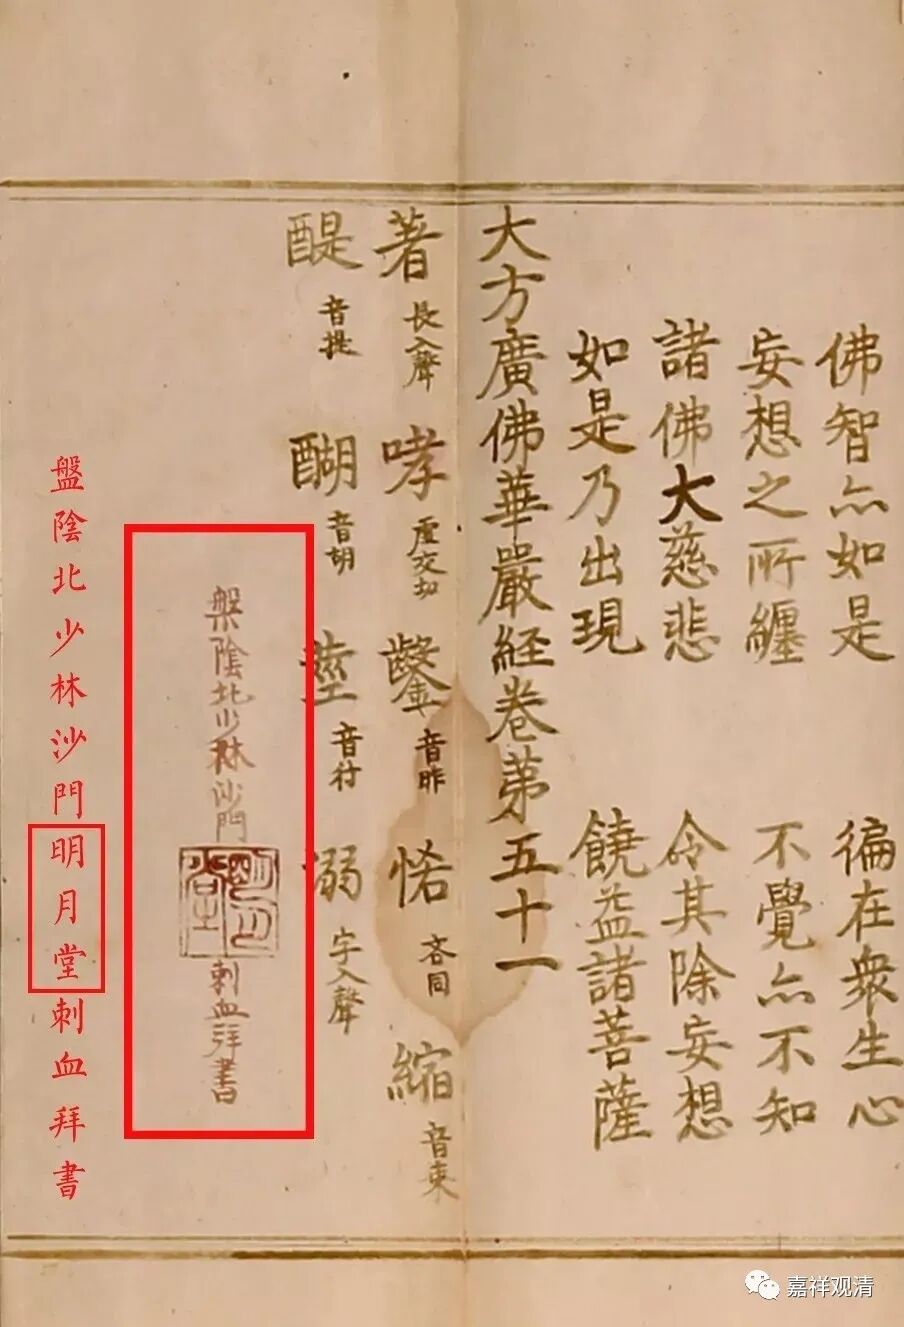 佛智亦如是 徧在衆生心
妄想之所纏 不覺亦不知
諸佛大慈悲 令其除妄想
如是乃出現 饒益諸菩薩
大方廣佛華嚴経卷第五十一
著 長入聲 哮 虛交切 鑿 音昨 悋 吝同 縮 音束
醍 音提 醐 音胡 音 溺 宁入聲
槃陰北少林沙門明月堂刺血拜書
盤陰北少林沙門明月堂刺血拜書
嘉祥观清